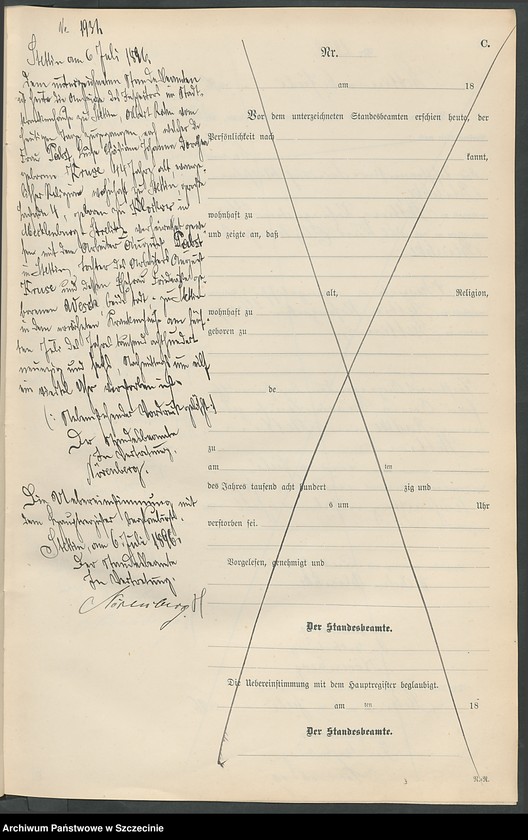 No. 1931.
Stettin am 6 Juli 1896.
Dem unterzeichneten Standesbeamten
ist heute die Anzeige des Inspektors im Stadt-
krankenhause zu Stettin, von
zugegangen, nach welcher die
Frau Pabst, Johanna Dorothea
geborene Kruse 44 Jahre alt evange-
lischer Religion wohnhaft zu Stettin
4, geboren zu in
Mecklenburg-Strelitz, verheirathet gewe-
sen mit dem Arbeiter August Pabst
in Stettin, Tochter des Arbeiters August
Kruse und dessen Ehefrau Friederike ge-
borenen beide todt, zu Stettin
in dem Krankenhause am fünf-
ten Juli des Jahres tausend achthundert
neunzig und sechs, Nachmittags um elf
ein viertel Uhr verstorben ist.
(: Nebenstehender Vordruck gelöscht :)
Der Standesbeamte
In Vertretung.
Nörenberg.
Die Uebereinstimmung mit
dem Hauptregister beglaubigt.
Stettin, am 6 Juli 1896.
Der Standesbeamte
In Vertretung.
Nörenberg
C.
Nr.
am 18
Vor dem unterzeichneten Standesbeamten erschien heute, der
Persönlichkeit nach
kannt,
wohnhaft zu
und zeigte an, daß
alt, Religion,
wohnhaft zu
geboren zu
de
zu
am ten
des Jahres tausend acht hundert zig und
s um Uhr
verstorben sei.
Vorgelesen, genehmigt und
Der Standesbeamte.
Die Uebereinstimmung mit dem Hauptregister beglaubigt.
am ten 18
Der Standesbeamte.
Archiwum Państwowe w Szczecinie